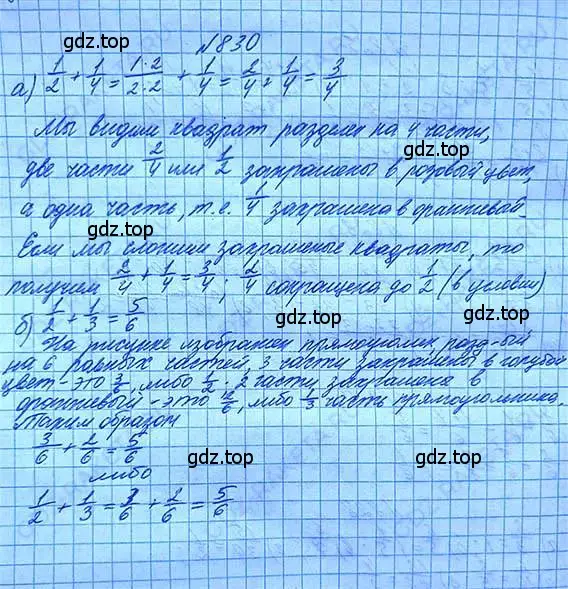 gdz.top
№830
а) 1/2 + 1/4 = 1·2/2·2 + 1/4 = 2/4 + 1/4 = 3/4
gdz.top
Мы видим квадрат разделен на 4 части,
две части 2/4 или 1/2 закрашены в розовый цвет,
а одна часть, т.е. 1/4 закрашена в оранжевый.
gdz.top
Если мы сложим закрашеные квадраты, то
получим 2/4 + 1/4 = 3/4; 2/4 сокращена до 1/2 (в условии)
gdz.top
б) 1/2 + 1/3 = 5/6
На рисунке изображен прямоугольник разд-ый
на 6 равных частей, 3 части закрашены в голубой
цвет - это 3/6, либо 1/2; 2 части закрашена в
оранжевый - это 2/6, либо 1/3 часть прямоугольника.
gdz.top
Таким образом
3/6 + 2/6 = 5/6
gdz.top
либо
1/2 + 1/3 = 3/6 + 2/6 = 5/6
gdz.top
gdz.top